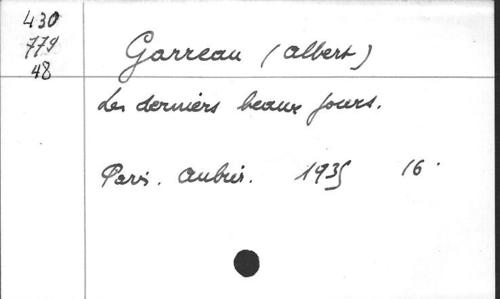 430
779
48
Garreau (Albert)
Les derniers beaux jours.
Paris. Aubier. 1935 16.